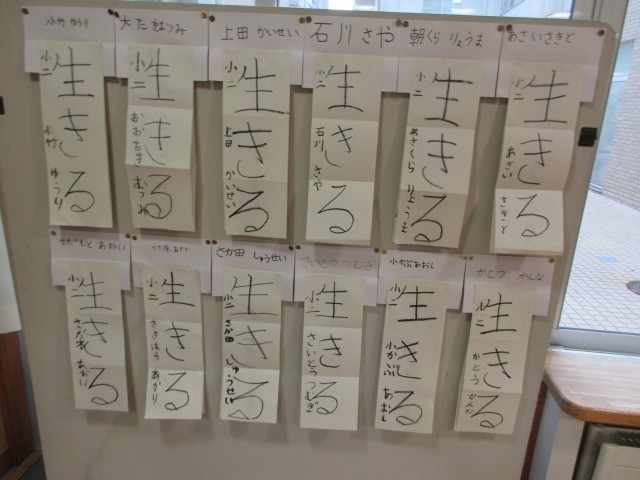 小竹 ゆうり
大たき むつみ
上田 かいせい
石川 さや
朝くら りょうま
あさいさきと
生きる
小二
小竹 ゆうり
生きる
小二
おおたき むつみ
生きる
小二
上田 かいせい
生きる
小二
石川 さや
生きる
小二
あさくら りょうま
生きる
小二
あさい さきと
さか田 しゅうせい
さいとう つむぎ
小かぶあおし
かとう かんな
生きる
小二
生きる
小二
ささはら あかり
生きる
小二
さか田 しゅうせい
生きる
小二
さいとう つむぎ
生きる
小二
小かぶ あおし
生きる
小二
かとう かんな